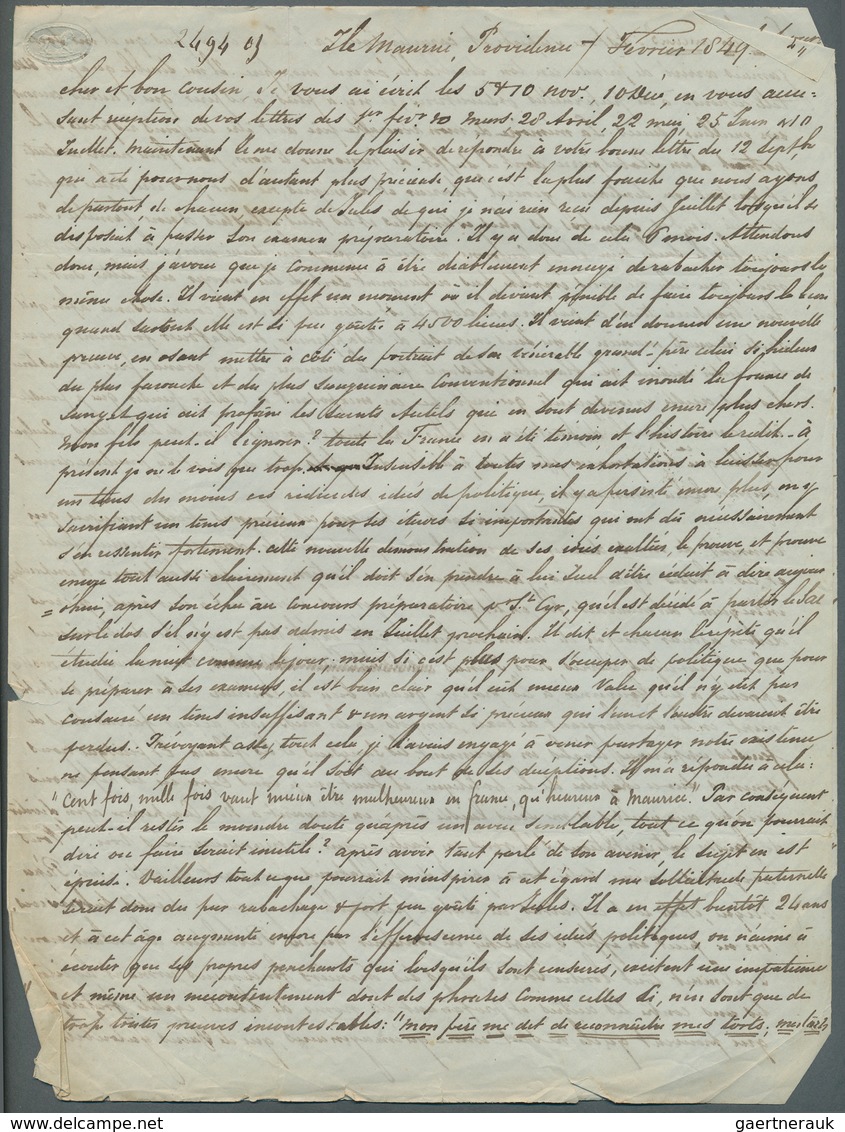 2494 
Ile Maurice, Providence 7 Février 1849
cher et bon Cousin, Je vous ai écrit les 5 & 10 nov. 10 Déc. en vous accu=
sant réception de vos lettres des 1er fév. 10 mars 28 Avril, 22 mai, 25 Juin & 10
Juillet. Maintenant Je me donne le plaisir de répondre à votre bonne lettre du 12 Septbe
qui a été pour nous d'autant plus précieuse, que c'est la plus fraiche que nous ayons
de partout de chacun, excepté de Jules de qui je n'ai rien reçu depuis Juillet lorsqu'il se
disposait à passer son examen préparatoire. Il y a donc de cela 6 mois. Attendons
donc, mais j'avoue que je commence à être diablement ennuyé de rabacher toujours la
même chose. Il vient en effet un moment où il devient pénible de faire toujours la
quand surtout elle est si peu goûtée à 4500 lieues. Il vient d'en donner une nouvelle
preuve, en osant mettre à côté du portrait de son vénérable grand-père celui si hideux
du plus farouche et du plus sanguinaire Conventionnel qui ait inondé la france de
sang et qui ait profané les saints Autels qui en sont devenus encore plus chers.
Mon fils peut-il l'ignorer? toute la France en a été témoin, et l'histoire le redit. À
présent je ne le vois que trop Insensible à toutes mes exhortations à laisser pour
un tems du moins ces idées de politique, il y a persisté encore plus, en y
sacrifiant un tems précieux pour ses études si importantes qui ont dû nécessairement
s'en ressentir fortement. Cette nouvelle démonstration de ses idées exaltées, le prouve, et prouve
encore tout aussi clairement qu'il doit s'en prendre à lui seul d'être réduit à dire aujour=
=d'hui, après son échec au Concours préparatoire pr St. Cyr, qu'il est décidé à porter le Sac
sur le dos s'il n'y est pas admis en Juillet prochain. Il dit et chacun répète qu'il
étudie la nuit comme le jour. mais si c'est plus pour s'occuper de politique que pour
se préparer à ses examens, il est bien clair qu'il eût mieux valu qu'il n'y eût pas
consacré un tems insuffisant & un argent si précieux qui l'un et l'autre devaient être
perdus. Prévoyant assez tout cela, je l'avais engagé à venir partager notre existence
ne pensant pas encore qu'il soit au bout de ses déceptions. Il m'a répondu à cela:
"Cent fois, mille fois vaut mieux être malheureux en france, qu'heureux à Maurice". Par conséquent
peut-il rester le moindre doute qu'après un aveu semblable, tout ce qu'on pourrait
dire ou faire serait inutile? après avoir tant parlé de son avenir, le sujet en est
épuisé. D'ailleurs tout ce que pourrait m'inspirer à cet égard ma sollicitude paternelle
serait donc du pur rabachage & fort peu goûté par Jules. Il a en effet bientôt 24 ans
et à cet âge augmenté encore par l'effervescence de ses idées politiques, on n'aime à
écouter que ses propres penchants qui lorsqu'ils sont censurés, excitent une impatience
et même un mécontentement dont des phrases comme celles ci, n'en sont que de
trop tristes preuves incontestables: "mon père me dit de reconnaître mes torts; mes torts
gaertnerauk